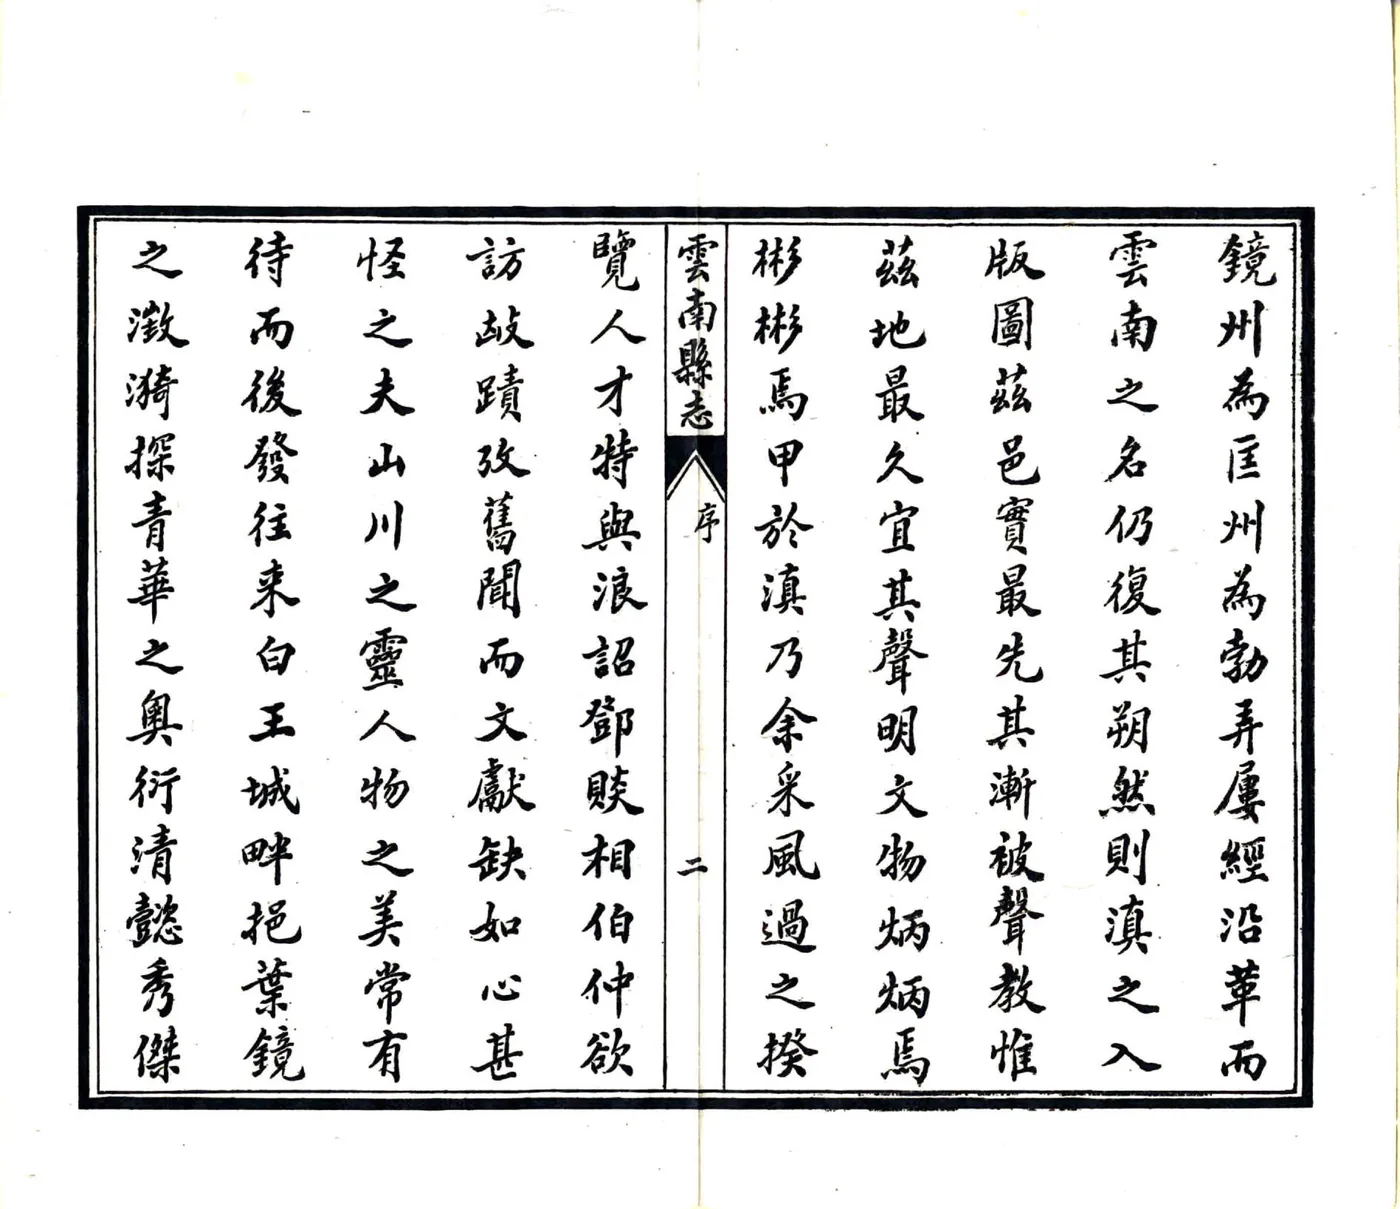 鏡州為匡州為勃弄屢經沿革而
雲南之名仍復其朔然則滇之入
版圖茲邑實最先其漸被聲教惟
茲地最久宜其聲明文物炳炳焉
彬彬焉甲於滇乃余采風過之揆
雲南縣志
序
二
覽人才特與浪詔鄧賧相伯仲欲
訪故蹟攷舊聞而文獻缺如心甚
怪之夫山川之靈人物之美常有
待而後發往来白王城畔挹葉鏡
之澂漪探青華之奧衍清懿秀傑